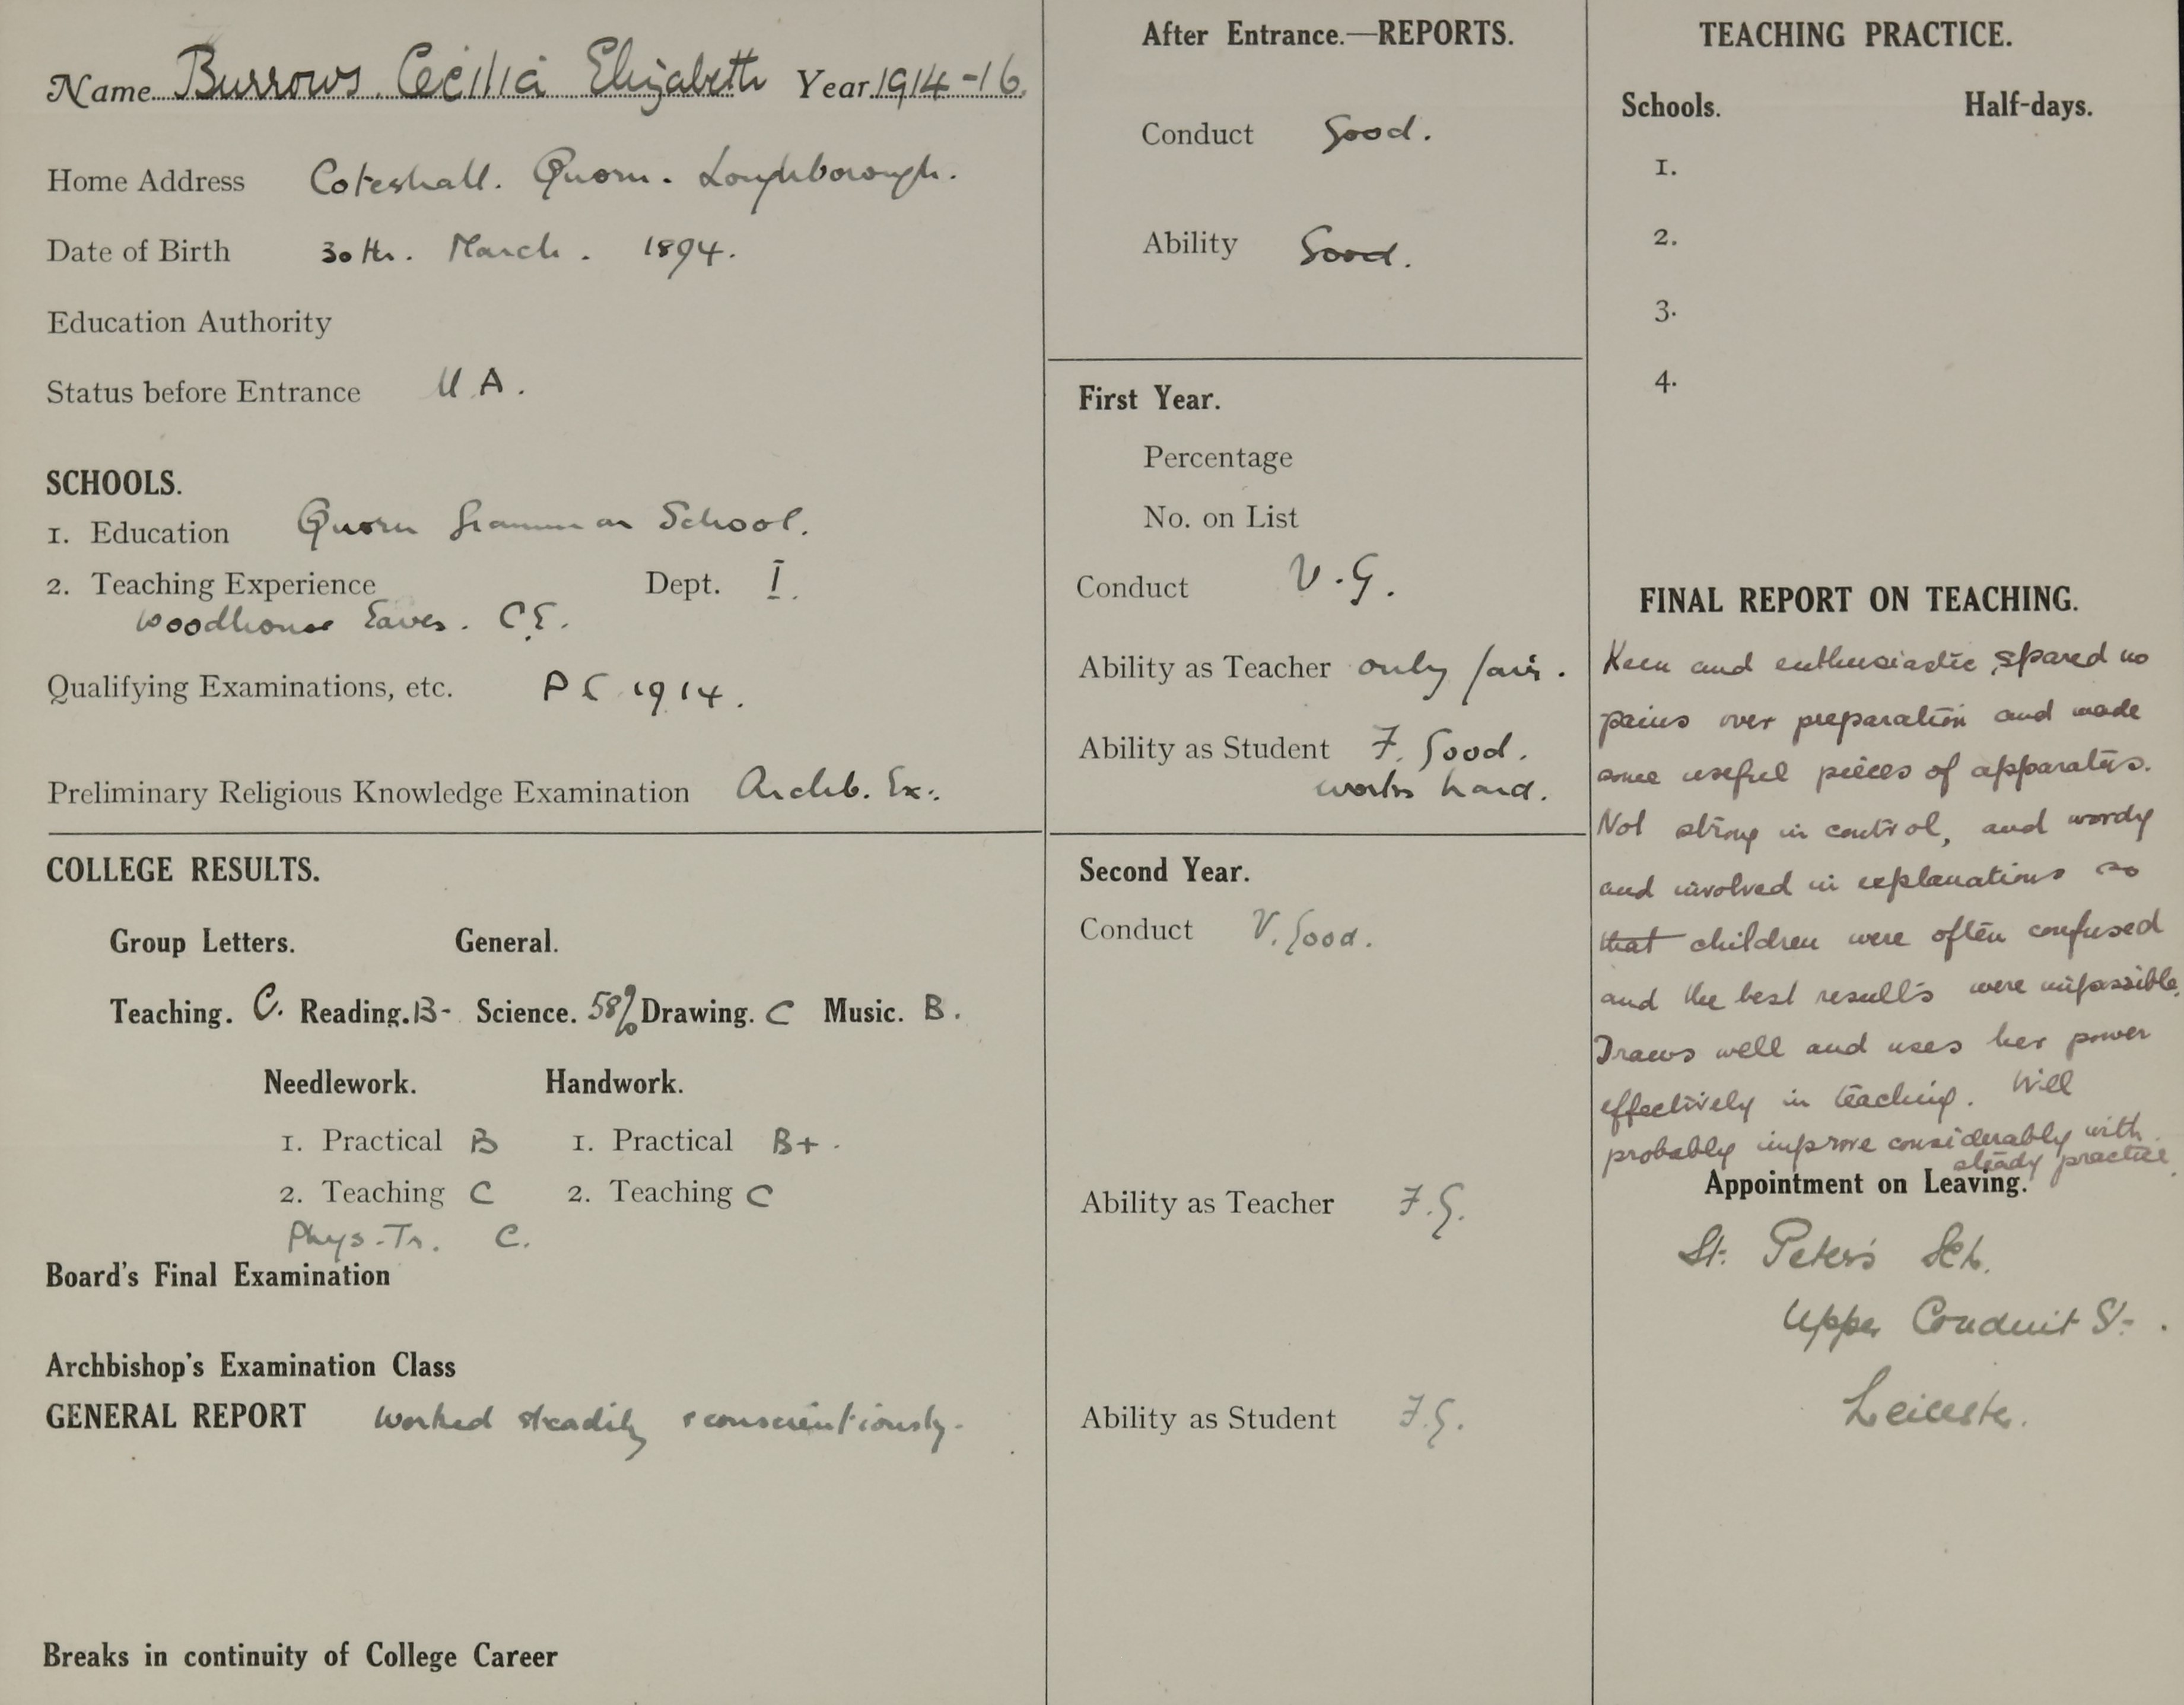 Name Burrows. Cecilia Elizabeth Year 1914-16.
Home Address Coteshall. Quorn. Loughborough.
Date of Birth 30th. March. 1894.
Education Authority
Status before Entrance U.A.
SCHOOLS.
1. Education Quorn Grammar School.
2. Teaching Experience Dept. I.
Woodhouse Eaves. C.E.
Qualifying Examinations, etc. P C 1914.
Preliminary Religious Knowledge Examination Archb. Ex:.
COLLEGE RESULTS.
Group Letters. General.
Teaching. C. Reading. B- Science. 58% Drawing. C Music. B.
Needlework. Handwork.
1. Practical B 1. Practical B+.
2. Teaching C 2. Teaching C
Phys-Tr. C.
Board's Final Examination
Archbishop's Examination Class
GENERAL REPORT Worked steadily & conscientiously.
Breaks in continuity of College Career
After Entrance.—REPORTS.
Conduct Good.
Ability Good.
First Year.
Percentage
No. on List
Conduct V.G.
Ability as Teacher only fair.
Ability as Student F. Good.
works hard.
Second Year.
Conduct V. Good.
Ability as Teacher F.G.
Ability as Student F.G.
TEACHING PRACTICE.
Schools. Half-days.
1.
2.
3.
4.
FINAL REPORT ON TEACHING.
Keen and enthusiastic, spared no
pains over preparation and made
some useful pieces of apparatus.
Not strong in control, and wordy
and involved in explanations so
that children were often confused
and the best results were impossible.
Draws well and uses her power
effectively in teaching. Will
probably improve considerably with
steady practice.
Appointment on Leaving.
St. Peter's Sch.
Upper Conduit St.
Leicester.